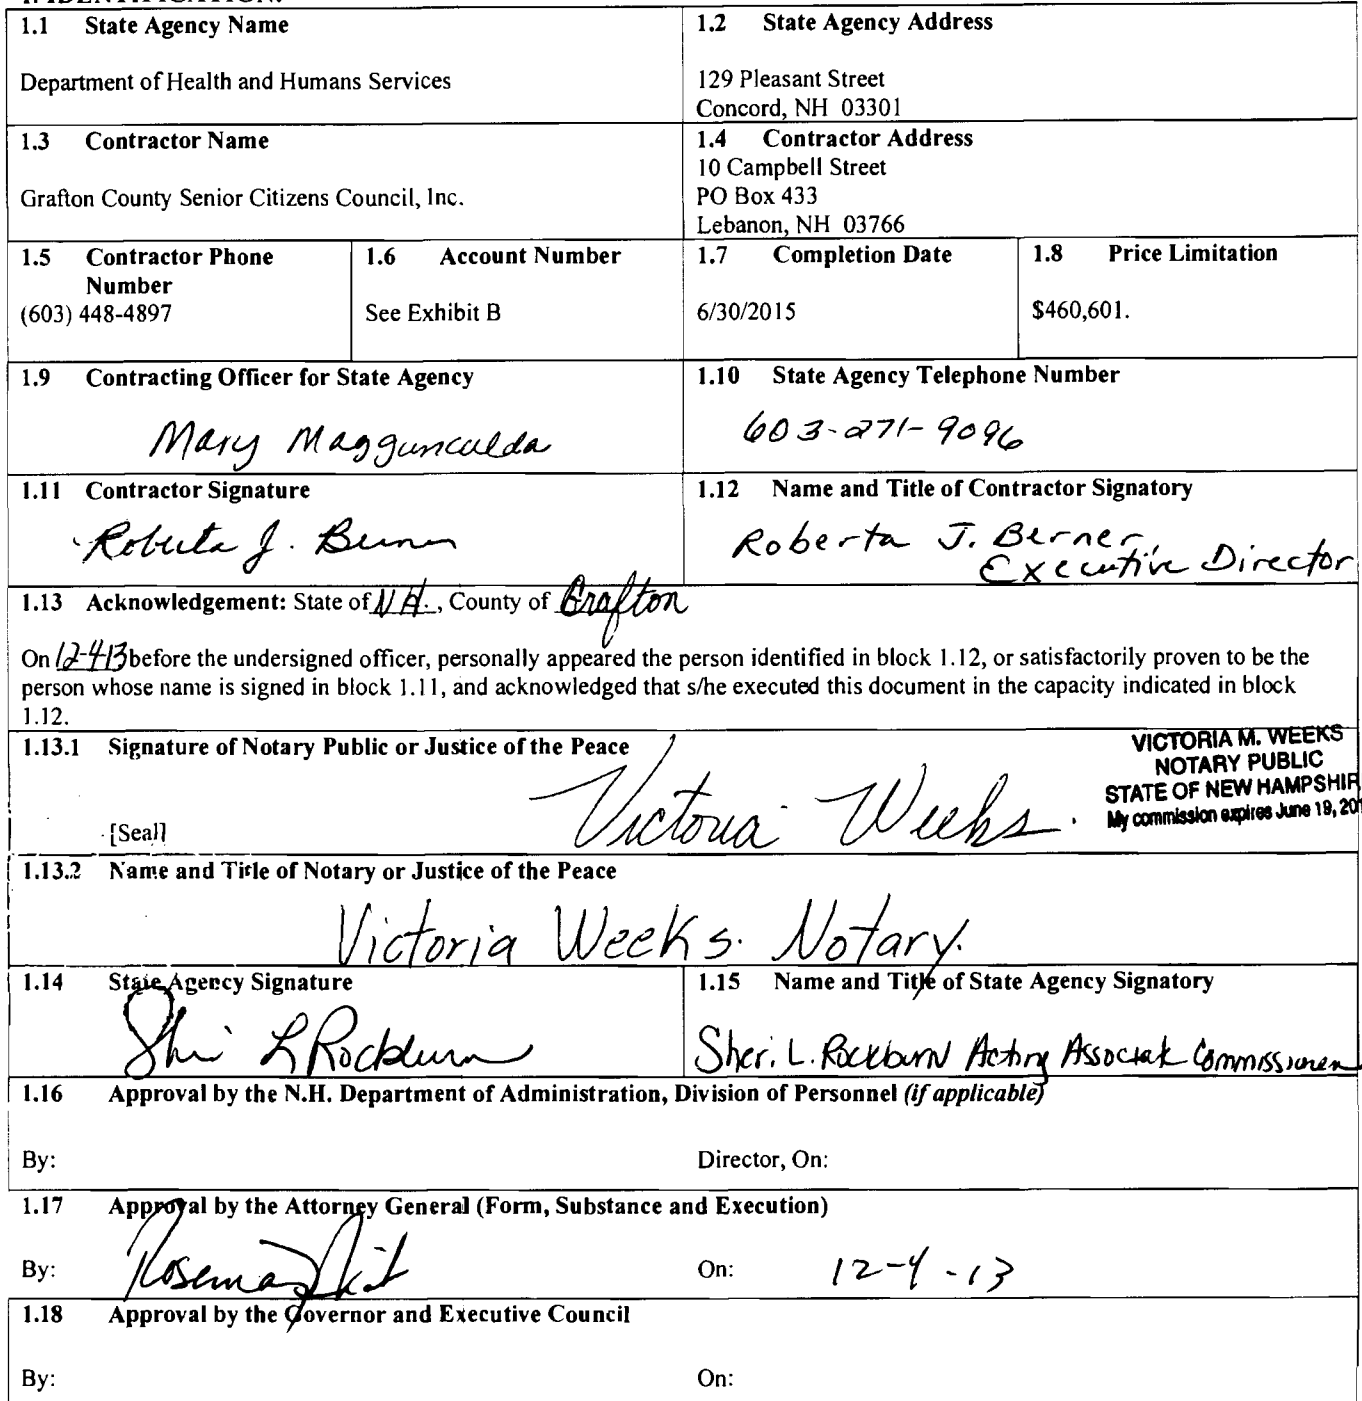 1.1 State Agency Name
Department of Health and Humans Services
1.2 State Agency Address
129 Pleasant Street
Concord, NH 03301
1.3 Contractor Name
Grafton County Senior Citizens Council, Inc.
1.4 Contractor Address
10 Campbell Street
PO Box 433
Lebanon, NH 03766
1.5 Contractor Phone
Number
(603) 448-4897
1.6 Account Number
See Exhibit B
1.7 Completion Date
6/30/2015
1.8 Price Limitation
$460,601.
1.9 Contracting Officer for State Agency
Mary Maggunculda
1.10 State Agency Telephone Number
603-271-9096
1.11 Contractor Signature
Roberta J. Berner
1.12 Name and Title of Contractor Signatory
Roberta J. Berner,
Executive Director
1.13 Acknowledgement: State of NH., County of Grafton
On 12-4-13 before the undersigned officer, personally appeared the person identified in block 1.12, or satisfactorily proven to be the
person whose name is signed in block 1.11, and acknowledged that s/he executed this document in the capacity indicated in block
1.12.
1.13.1 Signature of Notary Public or Justice of the Peace
Victoria Weeks.
[Seal]
VICTORIA M. WEEKS
NOTARY PUBLIC
STATE OF NEW HAMPSHIR
My commission expires June 19, 201
1.13.2 Name and Title of Notary or Justice of the Peace
Victoria Weeks. Notary.
1.14 State Agency Signature
Sheri L Rockburn
1.15 Name and Title of State Agency Signatory
Sheri L. Rockburn Acting Associate Commissioner
1.16 Approval by the N.H. Department of Administration, Division of Personnel (if applicable)
By:
Director, On:
1.17 Approval by the Attorney General (Form, Substance and Execution)
By: Rosemary
On: 12-4-13
1.18 Approval by the Governor and Executive Council
By:
On: